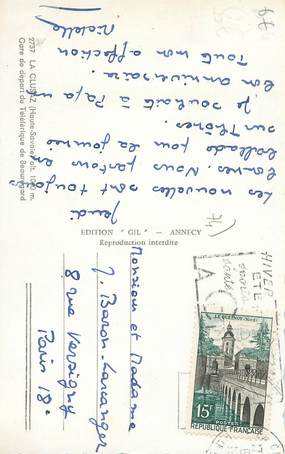 74
Jeudi
Les nouvelles sont toujours
bonnes. Nous partons en
ballade pour la journée
sur Thônes.
Je souhaite à Papa un
bon anniversaire.
Toute mon affection
2737 LA CLUSAZ (Haute-Savoie) alt. 1040 m.
Gare de départ du Téléférique de Beauregard
EDITION "GIL" - ANNECY
Reproduction interdite
Monsieur et Madame
J. Baron-Lavanger
8 rue Versigny
Paris 18e
HIVER
ETE
LE QUESNOY (Nord)
15F
REPUBLIQUE FRANÇAISE